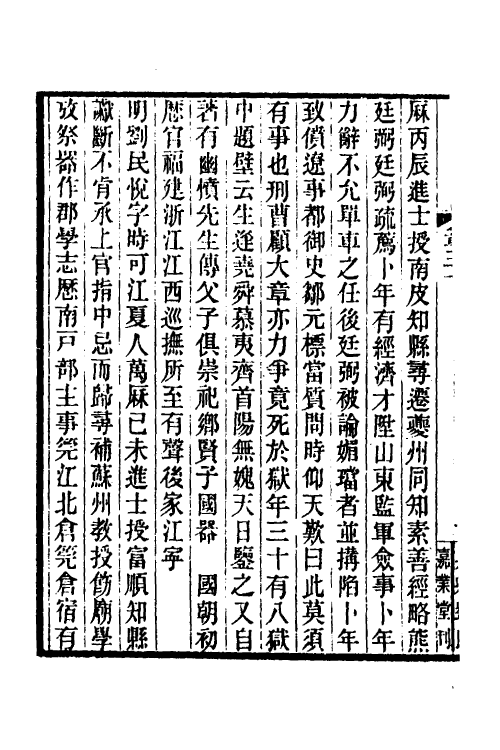 厤丙辰進士授南皮知縣尋遷夔州同知素善經略熊
廷弼廷弼疏薦卜年有經濟才陞山東監軍僉事卜年
力辭不允單車之任後廷弼被論媚璫者並搆陷卜年
致僨遼事都御史鄒元標當質問時仰天歎曰此莫須
有事也刑曹顧大章亦力爭竟死於獄年三十有八獄
中題壁云生逢堯舜慕夷齊首陽無媿天日鑒之又自
著有幽憤先生傳父子俱崇祀鄉賢子國器 國朝初
厯官福建浙江江西巡撫所至有聲後家江寧
明劉民悅字時可江夏人萬厤已未進士授富順知縣
讞斷不肯承上官指中忌而歸尋補蘇州教授飭廟學
攷祭器作郡學志厯南戸部主事筦江北倉筦倉宿有
嘉業堂刊